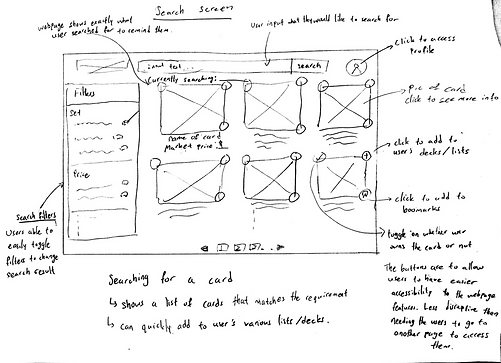 Search screen
webpage shows exactly what
user searched for to remind them.
User input what they would like to search for
click to access
profile
input text...
search
Currently searching:
Filters
Set
Price
Pic of card
click to see more info
name of card
Market price: $
click to add to
user's decks/lists
click to add to
boomarks
toggle on whether user
owns the card or not
search filters
Users able to
easily toggle
filters to change
search result
1 2 3 ..
Searching for a card
↳ shows a list of cards that matches the requirement
↳ can quickly add to user's various lists/decks.
The buttons are to allow
users to have easier
accessibility to the webpage
features. Less disruptive than
needing the users to go to
another page to access
them.